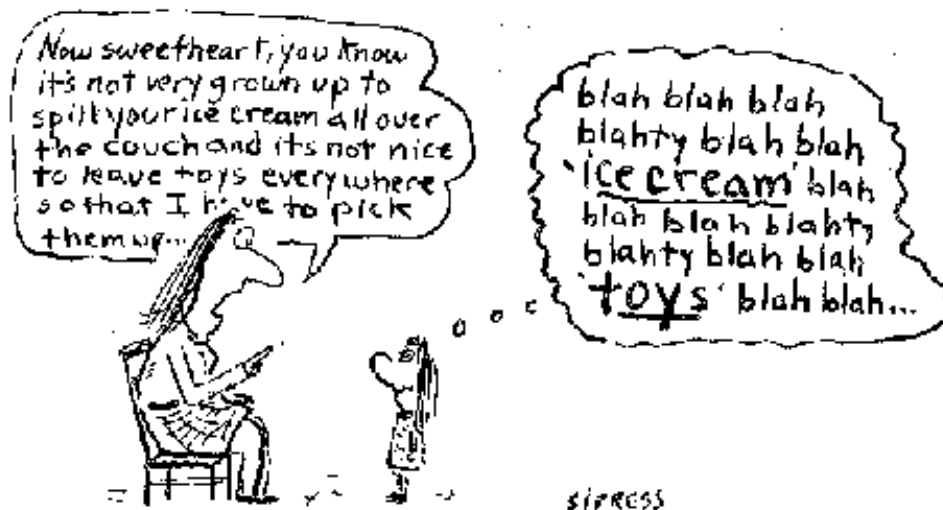 Now sweetheart, you know
it's not very grown up to
spill your ice cream all over
the couch and it's not nice
to leave toys everywhere
so that I have to pick
them up...
blah blah blah
blahty blah blah
'ice cream' blah
blah blah blahty
blahty blah blah
'toys' blah blah...
SIPRESS